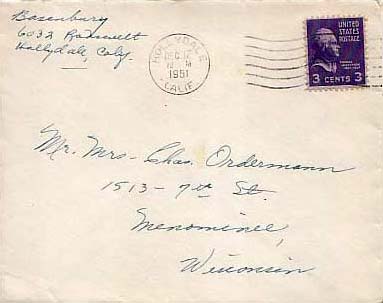 Basenbury
6032 Roosevelt
Hollydale, Caly.
HOLLYDALE
DEC 12
M
1951
CALIF.
UNITED
STATES
POSTAGE
3 CENTS 3
Mr. Mrs - Chas. Ordermann
1513 - 7th St.
Menominee,
Wisconsin